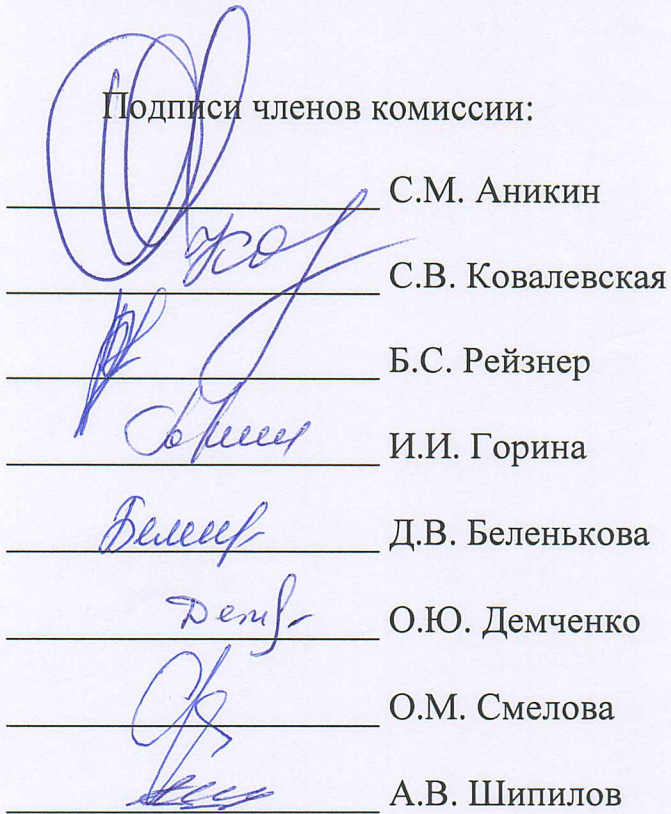 Подписи членов комиссии:
С.М. Аникин
С.В. Ковалевская
Б.С. Рейзнер
И.И. Горина
Д.В. Беленькова
О.Ю. Демченко
О.М. Смелова
А.В. Шипилов